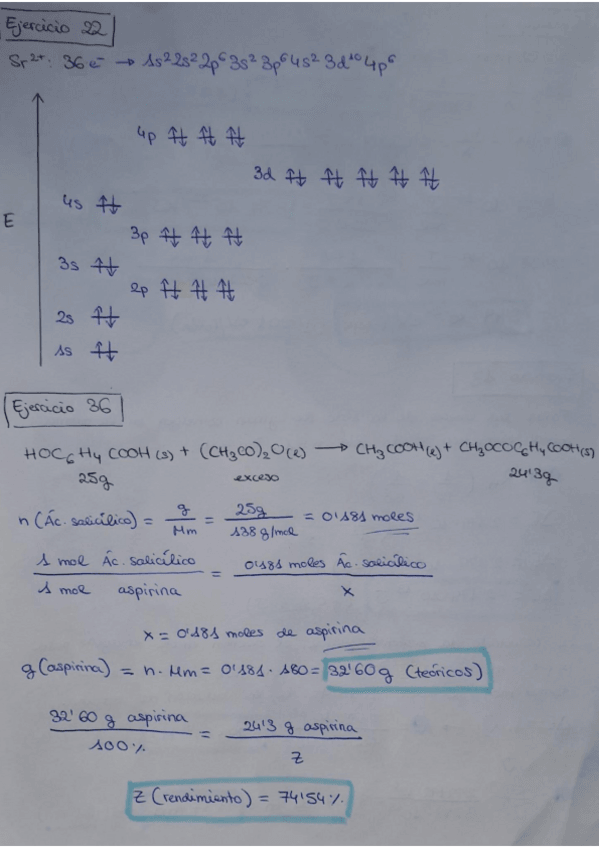 Ejercicio 22
Sr²⁺: 36 e⁻ → 1s² 2s² 2p⁶ 3s² 3p⁶ 4s² 3d¹⁰ 4p⁶
4p ⥮ ⥮ ⥮
3d ⥮ ⥮ ⥮ ⥮ ⥮
4s ⥮
E
3p ⥮ ⥮ ⥮
3s ⥮
2p ⥮ ⥮ ⥮
2s ⥮
1s ⥮
Ejercicio 36
HOC₆H₄COOH(s) + (CH₃CO)₂O(l) → CH₃COOH(l) + CH₃OCOC₆H₄COOH(s)
25g exceso 24'3g
n (Ác. salicílico) = g/Mm = 25g/138 g/mol = 0'181 moles
1 mol Ác. salicílico / 1 mol aspirina = 0'181 moles Ác. salicílico / x
x = 0'181 moles de aspirina
g (aspirina) = n · Mm = 0'181 · 180 = 32'60 g (teóricos)
32'60 g aspirina / 100% = 24'3 g aspirina / z
z (rendimiento) = 74'54%